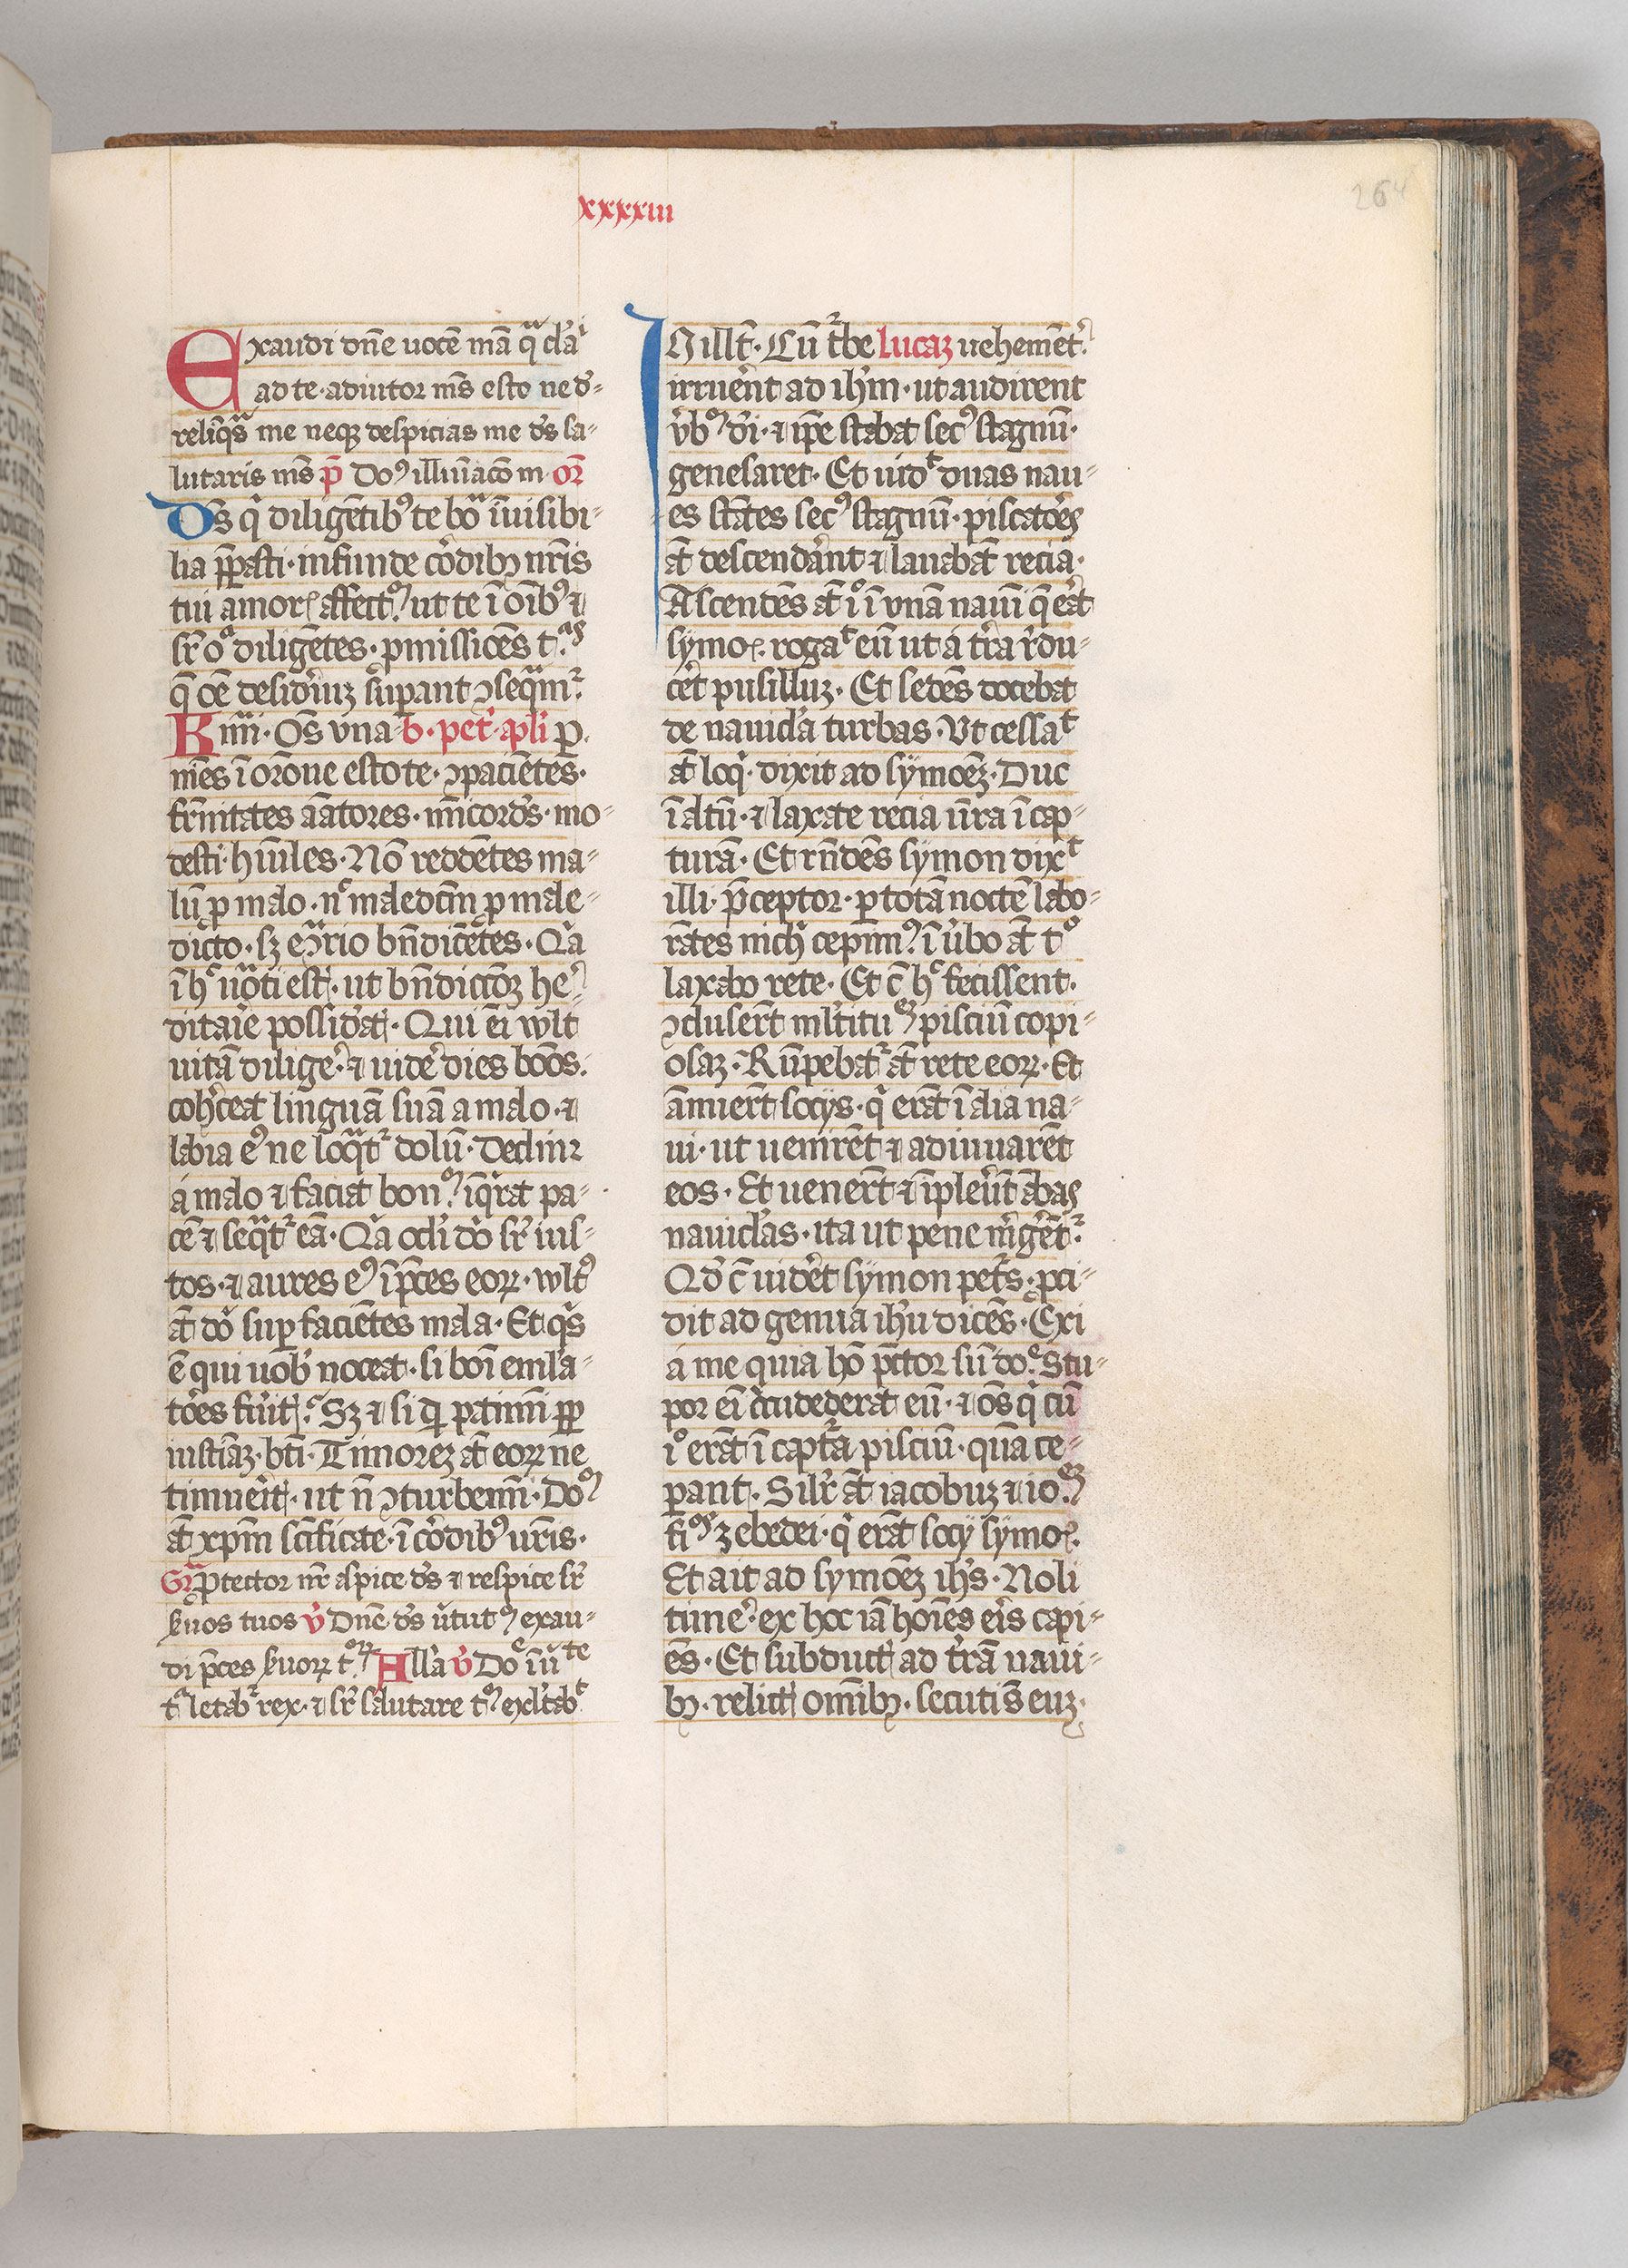 xxxxiii
264
Exaudi dn̄e uocē mā qᵃ cla͛ⁱ
ad te · adiutor ms̄ esto ne d͛-
relīqᵃs me neqꝫ despicias me ds̄ sa-
lutaris ms̄ p̄ Doꝰ illuīacō m · or̄
Ds̄ qⁱ diligētibꝰ te boᵃ īuisibi-
lia p̄pasti · infunde co͛dibꝫ nr̄is
tui amor̨ affectꝰ ut te ī oībꝰ ⁊
sr̄ oᵃ diligētes · ꝓmissiōes t·ᵃˢ
q̄ oē desid͛iuꝫ sup͛ant ꝯseqᵃm²
Kmi · Os̄ vna b · pet͛ · apl̄i p
mēs ī orōne estote · ꝯpaciētes ·
fr̄nitates aātores · m̄icords̄ · mo-
desti · hūiles · Nō reddētes ma-
lū ꝓ malo · nᶜ maledcm̄ ꝓ male-
dicto · sꝫ eꝯᵃrio bn̄dicētes · Qᵃ
ī hᶜ uoᵃti estꝭ · ut bn̄dictōꝫ he͛-
ditate possid͛atꝭ · Qui ei̅ wlt
uitā dilige͛ · ⁊ uide͛ dies boōs ·
coh͛ceat linguā suā a malo · ⁊
labia eꝰ ne loqᵃt² dolū · Declin²
á malo ⁊ faciat bonꝰ · īqⁱrat pa-
cē ⁊ seqᵃt² eā · Qᵃ ocl͛i do͛ sr̄ ius-
tos · ⁊ aures eꝰ ī p̄ces eoꝝ · wltꝰ
āt do͛ suꝑ faciētes mala · Et qⁱs
ē qui uob͛ noceat · si boī emla͛-
to͛es fūitꝭ · Sꝫ ⁊ si qᵈ patimi ꝓꝑ
iusticiāꝫ · bt̄i · Timoreꝫ āt eoꝝ ne
timueitꝭ · ut n̄ ꝯturbemi · Doꝰ
āt xpm̄ scīficate · ī co͛dibꝰ ur̄is ·
Gr̄ Ꝓtector nr̄ aspice ds̄ ⁊ respice sr̄
ẜuos tuos v͛ Dn̄e ds̄ u͛tutꝰ exau-
di p̄ces ẜuoꝝ t·ᵒꝝ All͛a v͛ Doᵉ ī u͛tᵗᵉ
tᵃ letabᵗ² rex · ⁊ sr̄ salutare tꝰ exl͛tabᵗ
INillt̄ · Cū t͛be lucaꝫ uehemēt²
irruēnt ad ih͛m · ut audirent
v͛bꝰ di͛ · ⁊ ip̄e stabat secꝰ stagnū ·
genesaret · Et uidᵗ duas nau-
es stātes secꝰ stagnū · piscato͛es
āt descend͛ant ⁊ lauabāt recia ·
Ascendēs āt iᵒ ī vnā nauī q̄ eāt
symoꝭ · rogaᵗ eū ut á tr̄a r͛du-
cet͛ pusilluꝫ · Et sedēs docebat
de nauicl͛a turbas · Vt cessaᵗ
āt loqⁱ · dixit ad symōeꝫ · Duc
ī altū · ⁊ laxate recia ur̄a ī cap-
turā · Et rn̄dēs symon dixᵗ
illi · p̄ceptor · ꝑ totā noctē labo-
rātes nich̄ cepimꝰ · ī u͛bo āt tᵒ
laxabo rete · Et c̄ hᶜ fecissent ·
ꝯclusert̄ ml̄titu·ᵉꝫ pisciū copi-
osaꝫ · Rūpebat² āt rete eoꝝ · Et
ānuert̄ socijs · qⁱ erāt ī alia na-
ui · ut uenirēt ⁊ adiuuarēt
eos · Et uenert̄ ⁊ īpleu͛t ābas
nauicl͛as · ita ut pene m͛g͛ēt² ·
Qd̄ c̄ uid͛et symon pet͛s · ꝓci-
dit ad genua ih͛u dicēs · Exi
á me quia hō pc̄tor sū doᵉ · Stu-
por ei̅ cͥcūdederat eū · ⁊ os̄ qⁱ cū
iᵒ erāt ī capt͛a pisciū · quā ce-
ꝑant · Silr̄ āt iacobuꝫ ⁊ io·ᵉꝫ
fi·ᵒˢ zebedei · qⁱ erāt socij symoꝭ ·
Et ait ad symōeꝫ ih͛s · Noli
time͛ · ex hoc iā hoīes eis̄ capi-
ēs · Et subductꝭ ad tr̄ā naui-
bꝫ · relictꝭ omībꝫ · secuti s̄ euꝫ ·